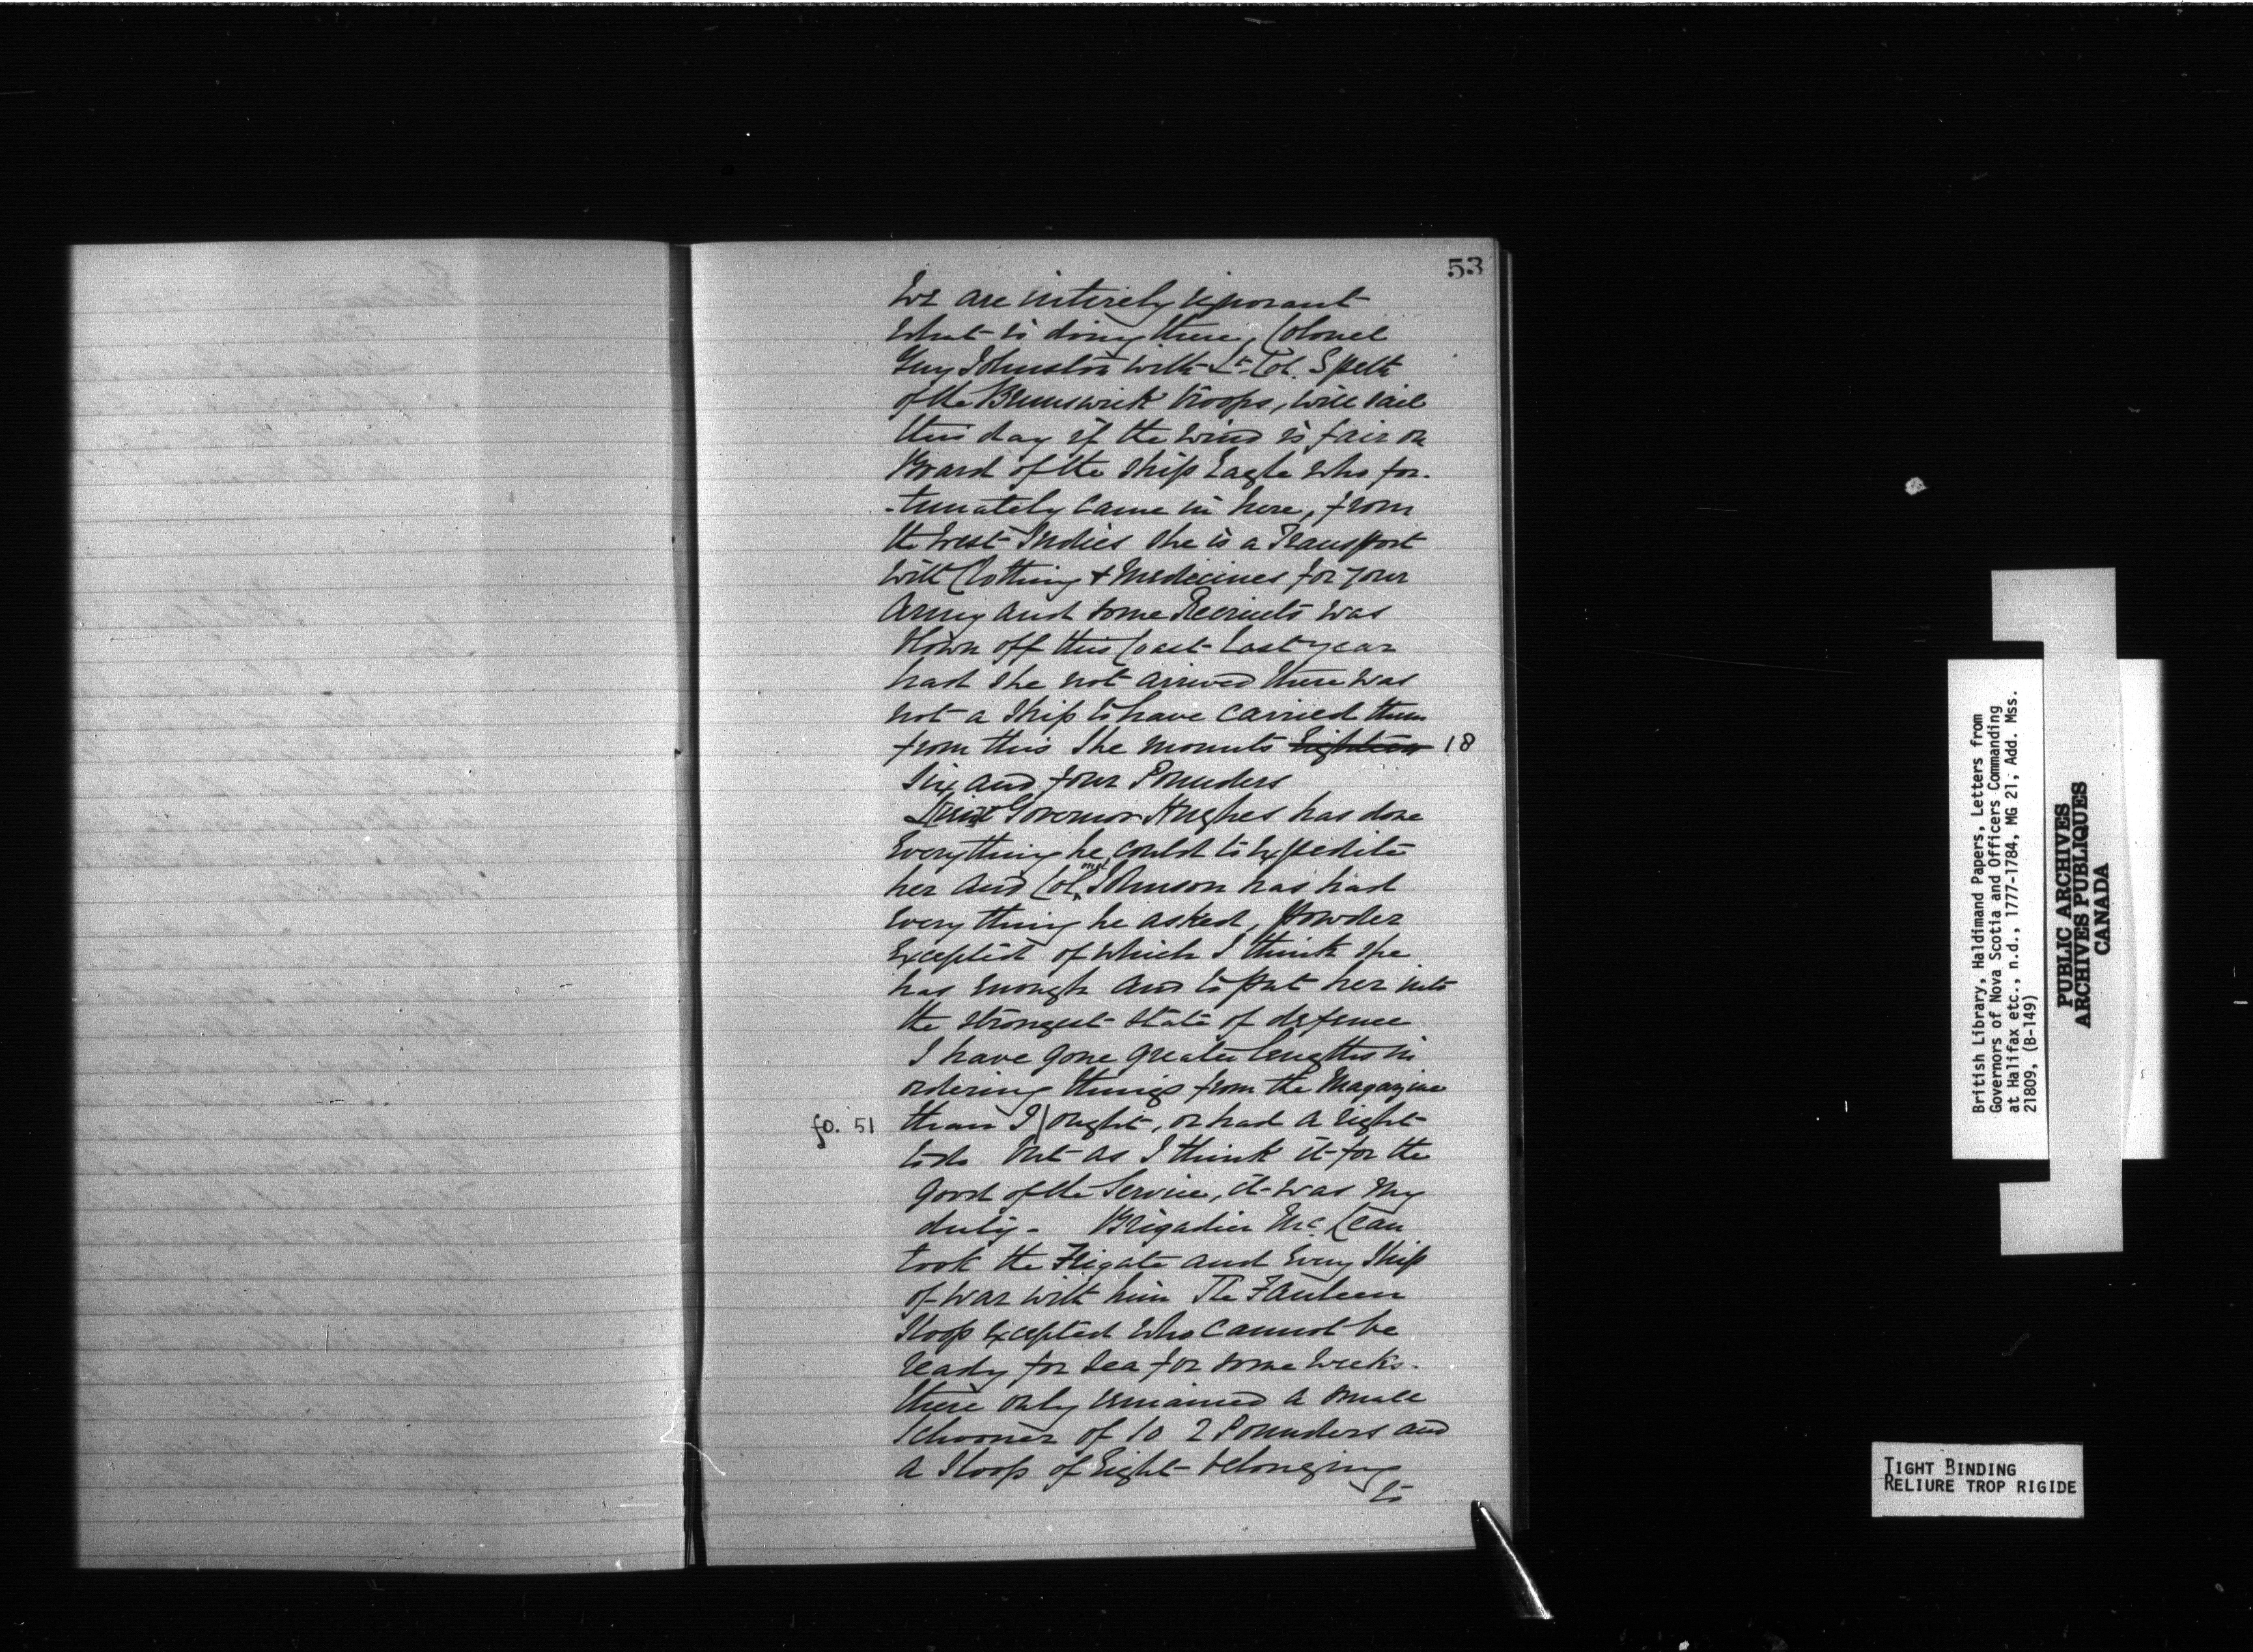 53
We are intirely ignorant
what is doing there, Colonel
Guy Johnston with Lt. Col. Speth
of the Brunswick troops, will sail
this day if the wind is fair on
Board of the Ship Eagle who for-
-tunately came in here, from
the West Indies she is a Transport
with Clothing & Medicines for your
Army and some Recruits was
blown off this Coast last year
had she not arrived there was
not a Ship to have carried them
from this She mounts Eighteen 18
Six and four Pounders
Lieut Governor Hughes has done
Everything he could to Expedite
her and Colonel Johnson has had
Everything he asked, powder
Excepted of which I think she
has enough and to put her into
the strongest state of defence
I have gone greater lengths in
ordering things from the Magazine
fo. 51 than I / ought, or had a right
to do But as I think it for the
good of the Service, it was my
duty - Brigadier McLean
took the Frigate and Every Ship
of war with him The
Sloop Excepted who cannot be
ready for Sea for some weeks.
there only remained a small
Schooner of 10 2 Pounders and
a Sloop of Eight belonging
to
British Library, Haldimand Papers, Letters from
Governors of Nova Scotia and Officers Commanding
at Halifax etc., n.d., 1777-1784, MG 21, Add. Mss.
21809, (B-149)
PUBLIC ARCHIVES
ARCHIVES PUBLIQUES
CANADA
TIGHT BINDING
RELIURE TROP RIGIDE